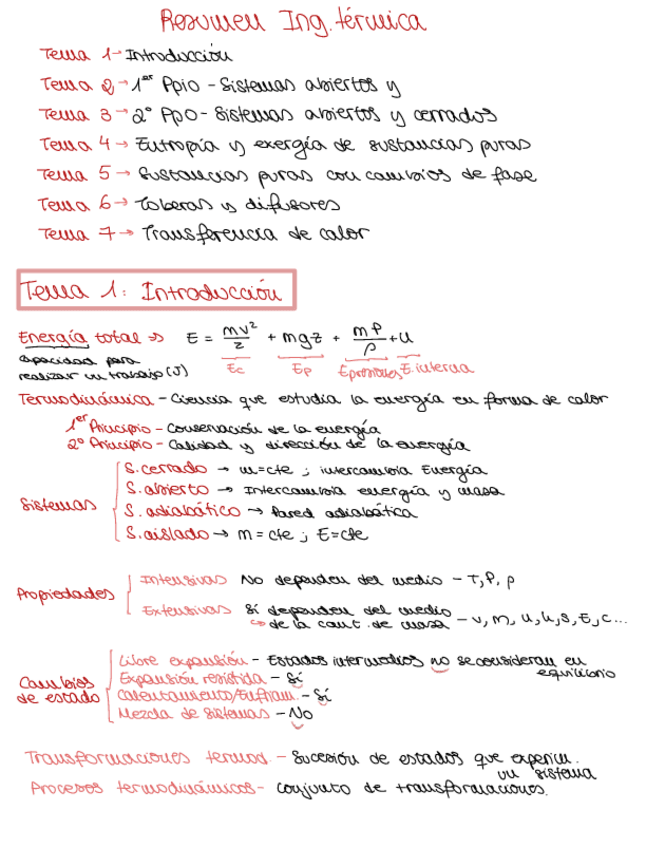 Resumen Ing. térmica
Tema 1→Introducción
Tema 2→1er Ppio - Sistemas abiertos y
Tema 3→2º Ppo- Sistemas abiertos y cerrados
Tema 4→ Entropía y exergía de sustancias puras
Tema 5→ Sustancias puras con cambios de fase
Tema 6→ Toberas y difusores
Tema 7→ Transferencia de calor
Tema 1: Introducción
Energía total ⇒ E = mv²/2 + mgz + mP/ρ + u
capacidad para
realizar un trabajo (J)
Ec Ep Epresiones E.interna
Termodinámica - Ciencia que estudia la energía en forma de calor
1er Principio - Conservación de la energía
2º Principio - Calidad y dirección de la energía
Sistemas
S. cerrado → m=cte ; intercambia Energía
S. abierto → Intercambia energía y masa
S. adiabático → Pared adiabática
S. aislado → m = cte ; E=cte
Propiedades
Intensivas No dependen del medio - T, P, ρ
Extensivas Sí dependen del medio
↪ de la cant. de masa - v, m, u, h, s, E, c...
Cambios
de estado
Libre expansión - Estados intermedios no se consideran en
equilibrio
Expansión resistida - Sí
Calentamiento/Enfriam. - Sí
Mezcla de sistemas - No
Transformaciones termod - Sucesión de estados que experim.
un sistema
Procesos termodinámicos - Conjunto de transformaciones.